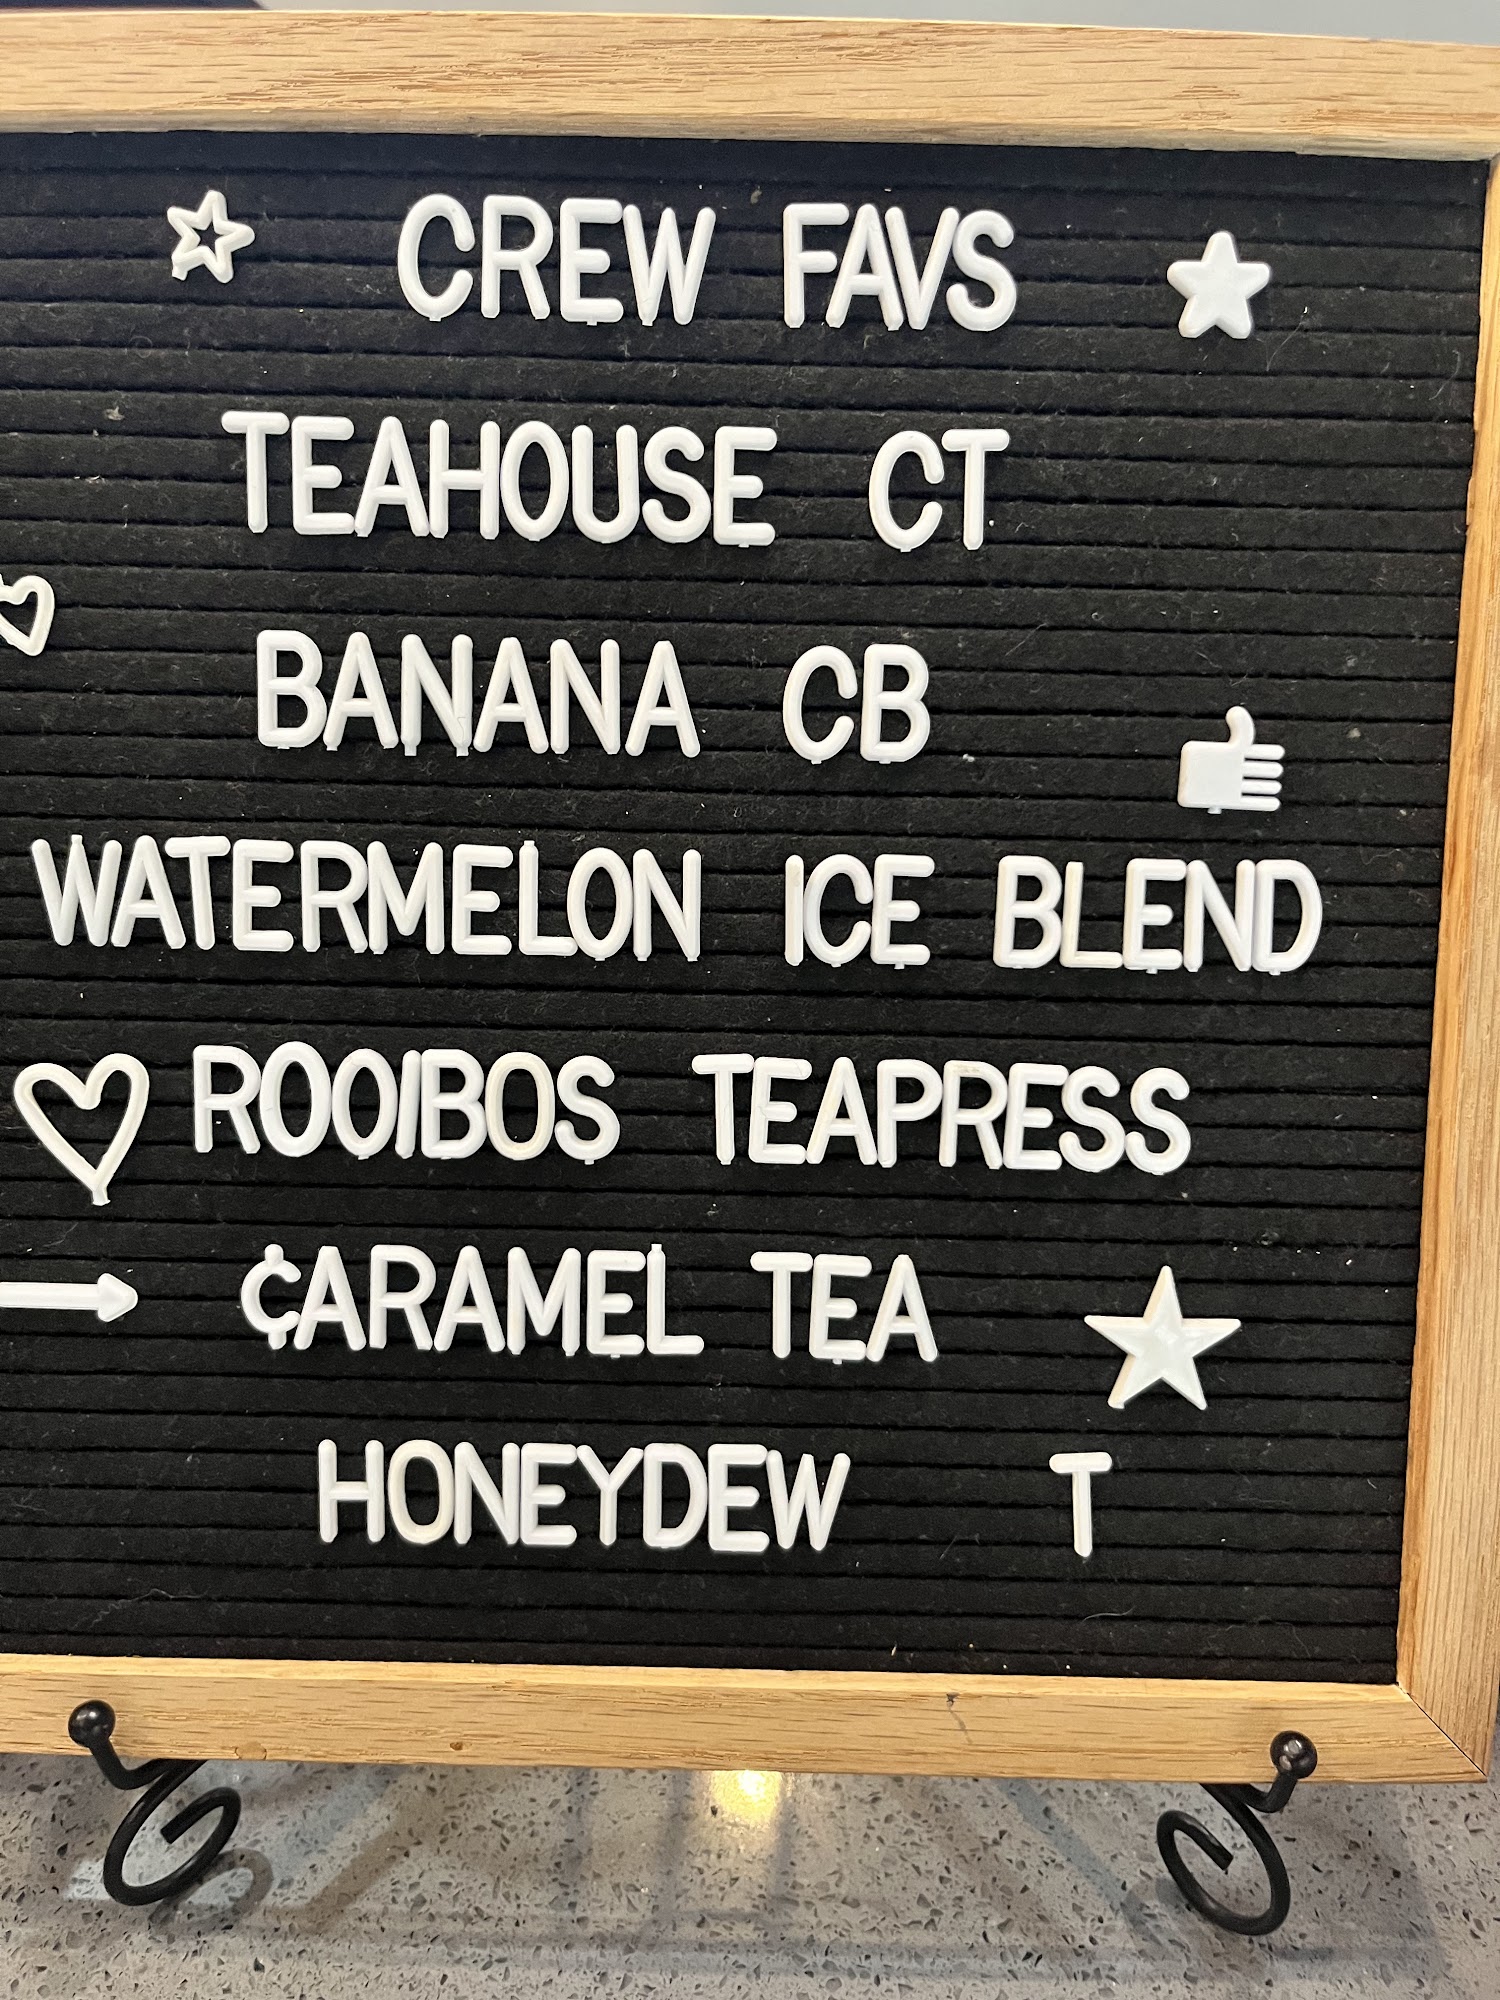 CREW FAVS
TEAHOUSE CT
BANANA CB
WATERMELON ICE BLEND
ROOIBOS TEAPRESS
¢ARAMEL TEA
HONEYDEW T